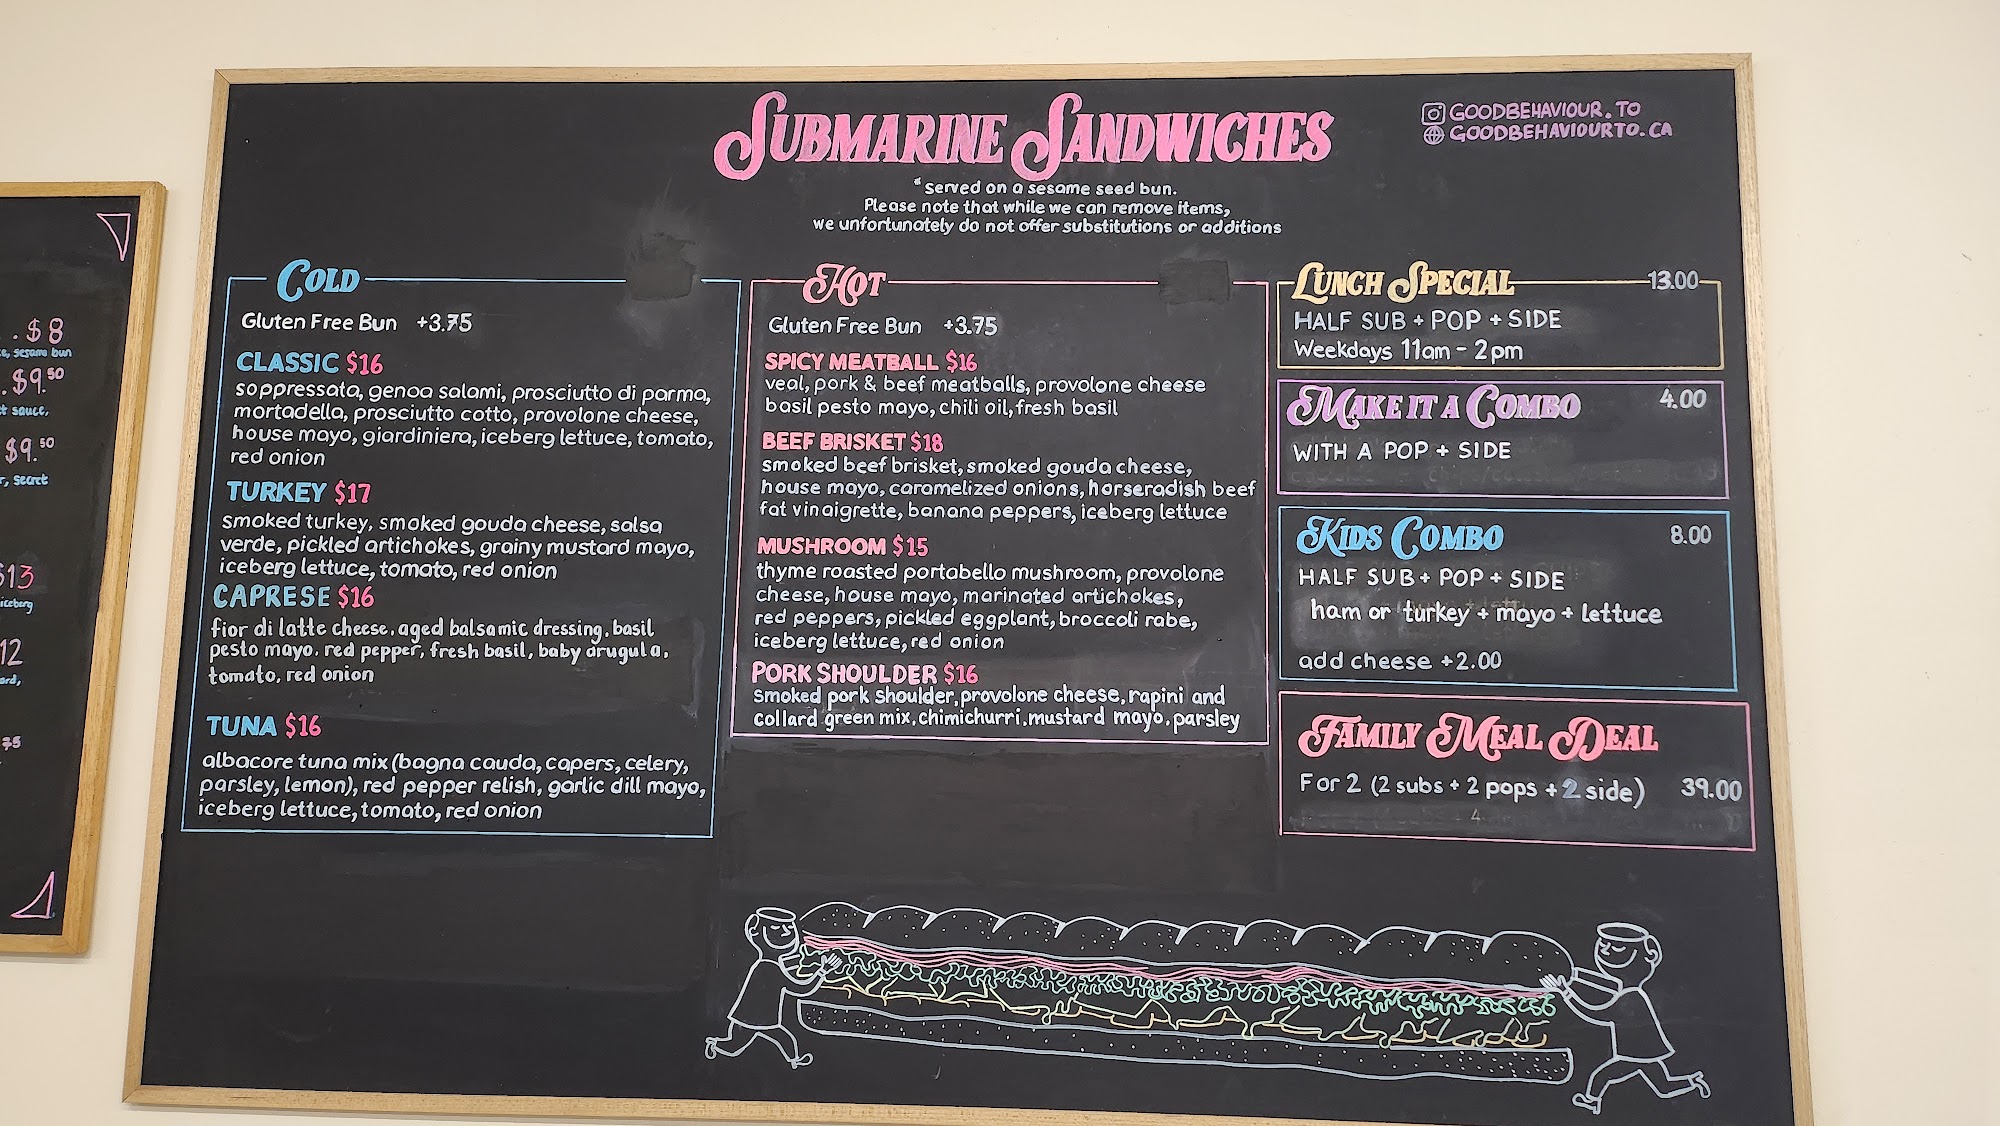 . . $8
e, sesame bun
. $9.50
t sauce,
$9.50
r, secret
$13
iceberg
12
ard,
75
SUBMARINE SANDWICHES
GOODBEHAVIOUR.TO
GOODBEHAVIOURTO.CA
*served on a sesame seed bun.
Please note that while we can remove items,
we unfortunately do not offer substitutions or additions
COLD
Gluten Free Bun +3.75
CLASSIC $16
soppressata, genoa salami, prosciutto di parma,
mortadella, prosciutto cotto, provolone cheese,
house mayo, giardiniera, iceberg lettuce, tomato,
red onion
TURKEY $17
smoked turkey, smoked gouda cheese, salsa
verde, pickled artichokes, grainy mustard mayo,
iceberg lettuce, tomato, red onion
CAPRESE $16
fior di latte cheese, aged balsamic dressing, basil
pesto mayo, red pepper, fresh basil, baby arugula,
tomato, red onion
TUNA $16
albacore tuna mix (bagna cauda, capers, celery,
parsley, lemon), red pepper relish, garlic dill mayo,
iceberg lettuce, tomato, red onion
HOT
Gluten Free Bun +3.75
SPICY MEATBALL $16
veal, pork & beef meatballs, provolone cheese
basil pesto mayo, chili oil, fresh basil
BEEF BRISKET $18
smoked beef brisket, smoked gouda cheese,
house mayo, caramelized onions, horseradish beef
fat vinaigrette, banana peppers, iceberg lettuce
MUSHROOM $15
thyme roasted portabello mushroom, provolone
cheese, house mayo, marinated artichokes,
red peppers, pickled eggplant, broccoli rabe,
iceberg lettuce, red onion
PORK SHOULDER $16
smoked pork shoulder, provolone cheese, rapini and
collard green mix, chimichurri, mustard mayo, parsley
LUNCH SPECIAL 13.00
HALF SUB + POP + SIDE
Weekdays 11am - 2pm
MAKE IT A COMBO 4.00
WITH A POP + SIDE
KIDS COMBO 8.00
HALF SUB + POP + SIDE
ham or turkey + mayo + lettuce
add cheese +2.00
FAMILY MEAL DEAL
For 2 (2 subs + 2 pops + 2 side) 39.00